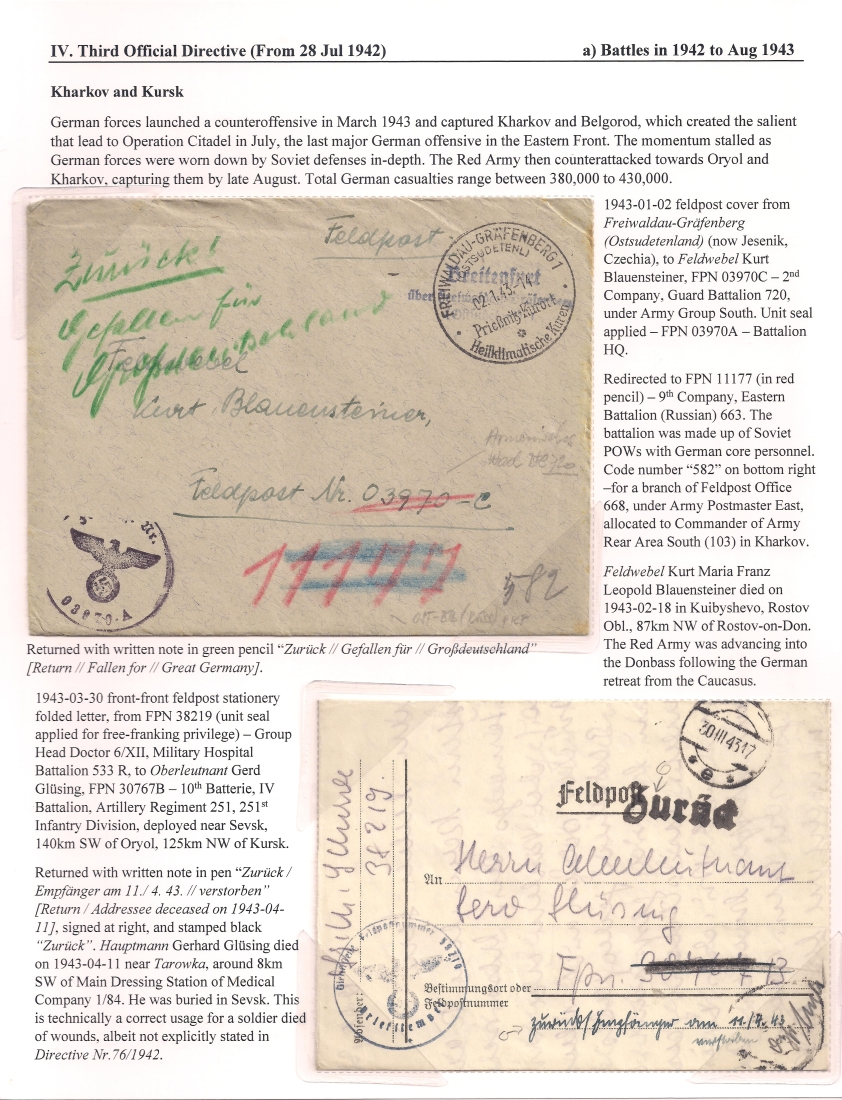 IV. Third Official Directive (From 28 Jul 1942)
a) Battles in 1942 to Aug 1943
Kharkov and Kursk
German forces launched a counteroffensive in March 1943 and captured Kharkov and Belgorod, which created the salient
that lead to Operation Citadel in July, the last major German offensive in the Eastern Front. The momentum stalled as
German forces were worn down by Soviet defenses in-depth. The Red Army then counterattacked towards Oryol and
Kharkov, capturing them by late August. Total German casualties range between 380,000 to 430,000.
Feldpost
Zurück!
Gefallen für
Großdeutschland
Feldwebel
Kurt Blauensteiner,
Feldpost Nr. 03970-C
11177
582
FREIWALDAU-GRÄFENBERG 1
(OSTSUDETENL)
02.1.43.-14
Prießnitz-Kurort
Heilklimatische Kuren
03970-A
1943-01-02 feldpost cover from
Freiwaldau-Gräfenberg
(Ostsudetenland) (now Jesenik,
Czechia), to Feldwebel Kurt
Blauensteiner, FPN 03970C – 2nd
Company, Guard Battalion 720,
under Army Group South. Unit seal
applied – FPN 03970A – Battalion
HQ.
Redirected to FPN 11177 (in red
pencil) – 9th Company, Eastern
Battalion (Russian) 663. The
battalion was made up of Soviet
POWs with German core personnel.
Code number “582” on bottom right
–for a branch of Feldpost Office
668, under Army Postmaster East,
allocated to Commander of Army
Rear Area South (103) in Kharkov.
Feldwebel Kurt Maria Franz
Leopold Blauensteiner died on
1943-02-18 in Kuibyshevo, Rostov
Obl., 87km NW of Rostov-on-Don.
The Red Army was advancing into
the Donbass following the German
retreat from the Caucasus.
Returned with written note in green pencil “Zurück // Gefallen für // Großdeutschland”
[Return // Fallen for // Great Germany].
1943-03-30 front-front feldpost stationery
folded letter, from FPN 38219 (unit seal
applied for free-franking privilege) – Group
Head Doctor 6/XII, Military Hospital
Battalion 533 R, to Oberleutnant Gerd
Glüsing, FPN 30767B – 10th Batterie, IV
Battalion, Artillery Regiment 251, 251st
Infantry Division, deployed near Sevsk,
140km SW of Oryol, 125km NW of Kursk.
Returned with written note in pen “Zurück /
Empfänger am 11./ 4. 43. // verstorben”
[Return / Addressee deceased on 1943-04-
11], signed at right, and stamped black
“Zurück”. Hauptmann Gerhard Glüsing died
on 1943-04-11 near Tarowka, around 8km
SW of Main Dressing Station of Medical
Company 1/84. He was buried in Sevsk. This
is technically a correct usage for a soldier died
of wounds, albeit not explicitly stated in
Directive Nr.76/1942.
30III4317
Feldpost
Zurück
An Herrn Oberleutnant
Gerd Glüsing
Fpn.
Bestimmungsort oder
Feldpostnummer
Absender:
38219
zurück/Empfänger am 11./4.43
verstorben